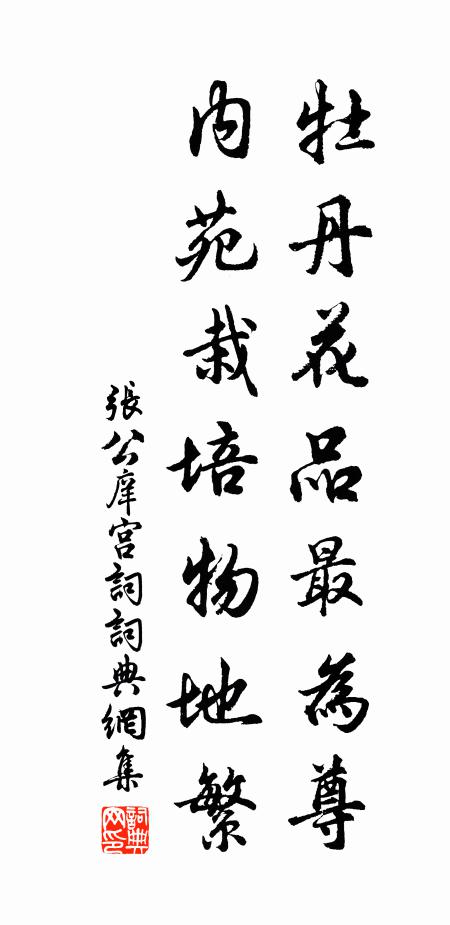 牡丹花品最為尊
內苑栽培物地繁
張公庠宮詞詞典網集
詞典网印